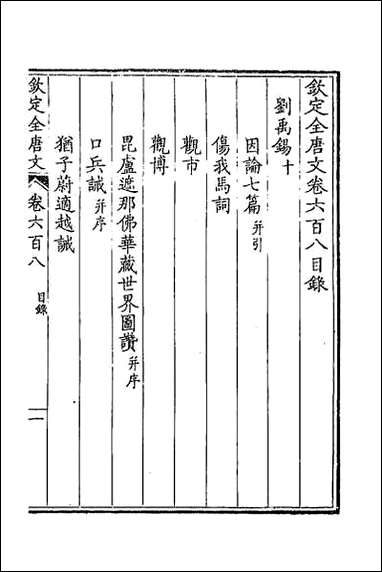 欽定全唐文卷六百八目錄
劉禹錫十
因論七篇并引
傷我馬詞
觀市
觀博
毘盧遮那佛華藏世界圖讚并序
口兵誡并序
猶子蔚適越誡
欽定全唐文 卷六百八 目錄 一